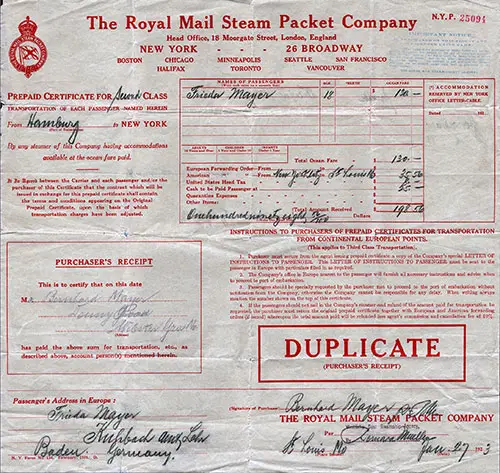 The Royal Mail Steam Packet Company
N.Y.P. 25094
Head Office, 18 Moorgate Street, London, England
NEW YORK - - 26 BROADWAY
BOSTON CHICAGO MINNEAPOLIS SEATTLE SAN FRANCISCO
HALIFAX TORONTO VANCOUVER
PREPAID CERTIFICATE FOR Second CLASS
TRANSPORTATION OF EACH PASSENGER NAMED HEREIN
From Hamburg to NEW YORK
By any steamer of this Company having accommodations
available at the ocean fare paid.
It Is Agreed between the Carrier and each passenger and/or the
purchaser of this Certificate that the contract which will be
issued in exchange for this prepaid certificate shall contain
the terms and conditions appearing on the Original
Prepaid Certificate, upon the basis of which
transportation charges have been adjusted.
NAMES OF PASSENGERS
Frieda Mayer 18 130
ACCOMMODATION
RESERVED BY NEW YORK
OFFICE LETTER-CABLE
Dated
ADULTS CHILDREN INFANTS
Total Ocean Fare 130
European Forwarding Order-From
American From New York to St Louis Mo
United States Head Tax
Cash to be Paid Passenger at
Quarantine Expenses
Other Items
Total Amount Received 198.50
One hundred ninety eight 50/100 Dollars
INSTRUCTIONS TO PURCHASERS OF PREPAID CERTIFICATES FOR TRANSPORTATION
FROM CONTINENTAL EUROPEAN POINTS.
(This applies to Third Class Transportation.)
1. Purchaser must secure from the agent issuing prepaid certificate a copy of the Company's special LETTER OF
INSTRUCTIONS TO PASSENGER. The LETTER OF INSTRUCTIONS TO PASSENGER must be sent to the
passenger in Europe with particulars filled in as required.
2. The Company's office in Europe nearest to the passenger will furnish all necessary instructions and advise when
to proceed to port of embarkation.
3. Passengers should be specially requested by the purchaser not to proceed to the port of embarkation without
notification from the Company, otherwise the Company cannot be responsible for any delay. When writing always
mention the number shown on the top of this certificate.
4. If the passengers should not sail in the Company's steamer and refund of the amount paid for transportation be
required, the purchaser must return the original prepaid certificate together with European and American forwarding
orders (if issued) whereupon the total amount paid will be refunded less agent's commission and cancellation fee of 10%.
PURCHASER'S RECEIPT
This is to certify that on this date
Mr. Bernhard Mayer
has paid the above sum for transportation, etc., as
described above, account person(s) mentioned herein.
DUPLICATE
(PURCHASER'S RECEIPT)
Passenger's Address in Europe:
Frieda Mayer
Baden Germany
(Signature of Purchaser) Bernhard Mayer
THE ROYAL MAIL STEAM PACKET COMPANY
Per
St Louis Mo Jan. 27 1923